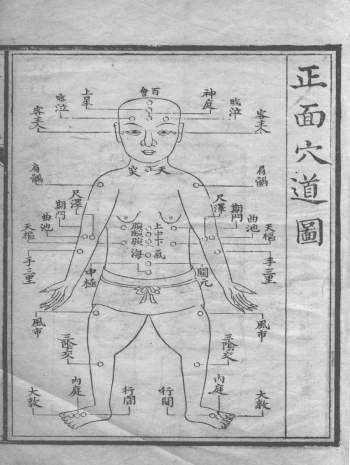 正面穴道圖
百會
上星
神庭
臨泣
臨泣
客主人
客主人
天突
肩髃
肩髃
尺澤
尺澤
期門
期門
曲池
曲池
天樞
天樞
手三里
手三里
上脘
中脘
下脘
氣海
中極
關元
風市
風市
三陰交
三陰交
內庭
內庭
行間
行間
大敦
大敦